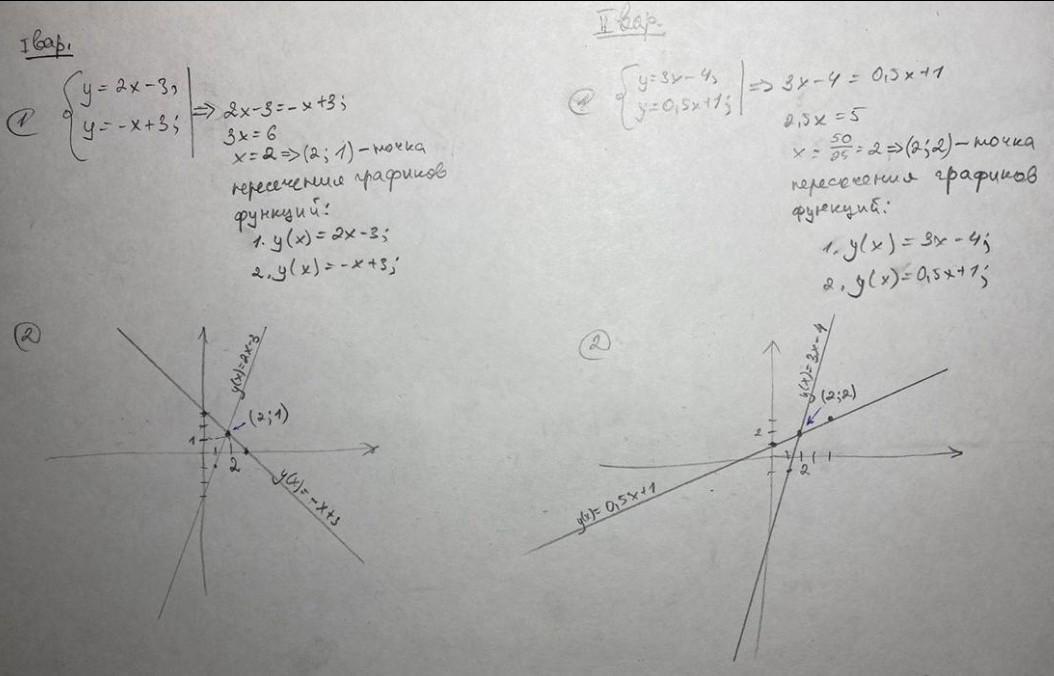 I вар.
① { y = 2x-3;
y = -x+3; | => 2x-3=-x+3;
3x=6
x=2=>(2; 1)-точка
пересечения графиков
функций:
1. y(x)=2x-3;
2. y(x)=-x+3;
②
y(x)=2x-3
(2;1)
1
2
y(x)=-x+3
II вар.
① { y=3x-4;
y=0,5x+1; | => 3x-4 = 0,5x+1
2,5x=5
x = 50/25 = 2 =>(2;2)-точка
пересечения графиков
функций:
1. y(x) = 3x-4;
2. y(x)=0,5x+1;
②
y(x)=3x-4
(2;2)
2
2
y(x)=0,5x+1